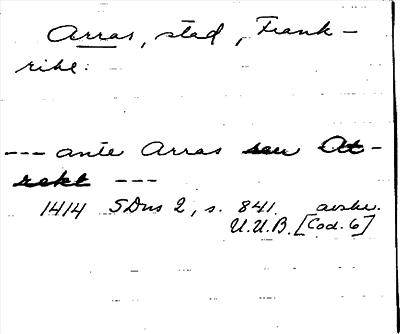 Arras, stad, Frank-
rike.
--- ante Arras seu At-
rekt ---
1414 SDns 2, s. 841. avskr.
U.U.B. [Cod. 6]